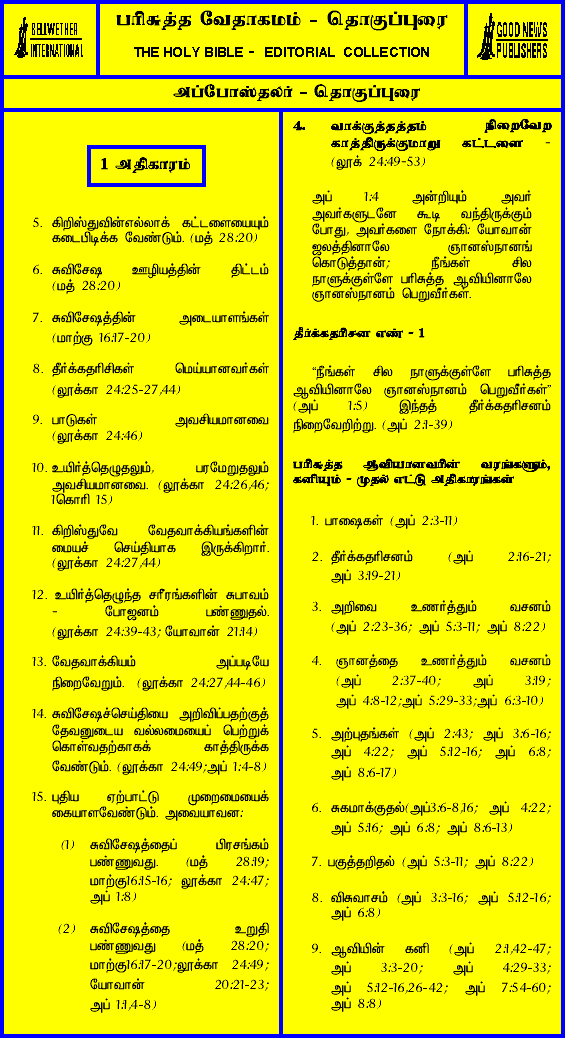 BELLWETHER
INTERNATIONAL
பரிசுத்த வேதாகமம் - தொகுப்புரை
THE HOLY BIBLE - EDITORIAL COLLECTION
GOOD NEWS
PUBLISHERS
அப்போஸ்தலர் - தொகுப்புரை
1 அதிகாரம்
5. கிறிஸ்துவின்எல்லாக் கட்டளையையும்
கடைபிடிக்க வேண்டும். (மத் 28:20)
6. சுவிசேஷ ஊழியத்தின் திட்டம்
(மத் 28:20)
7. சுவிசேஷத்தின் அடையாளங்கள்
(மாற்கு 16:17-20)
8. தீர்க்கதரிசிகள் மெய்யானவர்கள்
(லூக்கா 24:25-27,44)
9. பாடுகள் அவசியமானவை
(லூக்கா 24:46)
10. உயிர்த்தெழுதலும், பரமேறுதலும்
அவசியமானவை. (லூக்கா 24:26,46;
1கொரி 15)
11. கிறிஸ்துவே வேதவாக்கியங்களின்
மையச் செய்தியாக இருக்கிறார்.
(லூக்கா 24:27,44)
12. உயிர்த்தெழுந்த சரீரங்களின் சுபாவம்
- போஜனம் பண்ணுதல்.
(லூக்கா 24:39-43; யோவான் 21:14)
13. வேதவாக்கியம் அப்படியே
நிறைவேறும். (லூக்கா 24:27,44-46)
14. சுவிசேஷச்செய்தியை அறிவிப்பதற்குத்
தேவனுடைய வல்லமையைப் பெற்றுக்
கொள்வதற்காகக் காத்திருக்க
வேண்டும். (லூக்கா 24:49;அப் 1:4-8)
15. புதிய ஏற்பாட்டு முறைமையைக்
கையாளவேண்டும். அவையாவன:
(1) சுவிசேஷத்தைப் பிரசங்கம்
பண்ணுவது. (மத் 28:19;
மாற்கு16:15-16; லூக்கா 24:47;
அப் 1:8)
(2) சுவிசேஷத்தை உறுதி
பண்ணுவது (மத் 28:20;
மாற்கு16:17-20;லூக்கா 24:49;
யோவான் 20:21-23;
அப் 1:1,4-8)
4. வாக்குத்தத்தம் நிறைவேற
காத்திருக்குமாறு கட்டளை -
(லூக் 24:49-53)
அப் 1:4 அன்றியும் அவர்
அவர்களுடனே கூடி வந்திருக்கும்
போது, அவர்களை நோக்கி: யோவான்
ஜலத்தினாலே ஞானஸ்நானங்
கொடுத்தான்; நீங்கள் சில
நாளுக்குள்ளே பரிசுத்த ஆவியினாலே
ஞானஸ்நானம் பெறுவீர்கள்.
தீர்க்கதரிசன எண் - 1
“நீங்கள் சில நாளுக்குள்ளே பரிசுத்த
ஆவியினாலே ஞானஸ்நானம் பெறுவீர்கள்”
(அப் 1:5) இந்தத் தீர்க்கதரிசனம்
நிறைவேறிற்று. (அப் 2:1-39)
பரிசுத்த ஆவியானவரின் வரங்களும்,
கனியும் - முதல் எட்டு அதிகாரங்கள்
1. பாஷைகள் (அப் 2:3-11)
2. தீர்க்கதரிசனம் (அப் 2:16-21;
அப் 3:19-21)
3. அறிவை உணர்த்தும் வசனம்
(அப் 2:23-36; அப் 5:3-11; அப் 8:22)
4. ஞானத்தை உணர்த்தும் வசனம்
(அப் 2:37-40; அப் 3:19;
அப் 4:8-12;அப் 5:29-33;அப் 6:3-10)
5. அற்பதங்கள் (அப் 2:43; அப் 3:6-16;
அப் 4:22; அப் 5:12-16; அப் 6:8;
அப் 8:6-17)
6. சுகமாக்குதல்(அப்3:6-8,16; அப் 4:22;
அப் 5:16; அப் 6:8; அப் 8:6-13)
7. பகுத்தறிதல் (அப் 5:3-11; அப் 8:22)
8. விசுவாசம் (அப் 3:3-16; அப் 5:12-16;
அப் 6:8)
9. ஆவியின் கனி (அப் 2:1,42-47;
அப் 3:3-20; அப் 4:29-33;
அப் 5:12-16,26-42; அப் 7:54-60;
அப் 8:8)